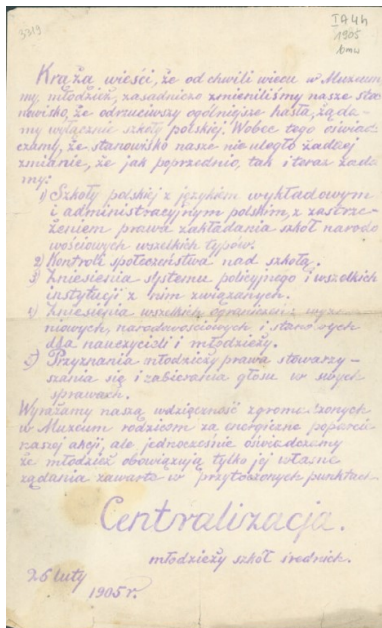 5319
IA4h
1905
Krążą wieści, że od chwili wiecu w Muzeum
my, młodzież, zasadniczo zmieniliśmy nasze sta-
nowisko, że odrzuciwszy ogólniejsze hasła, żąda-
my wyłącznie szkoły polskiej. Wobec tego oświad-
czamy, że stanowisko nasze nie uległo żadnej
zmianie, że jak poprzednio, tak i teraz żąda
my:
1) Szkoły polskiej z językiem wykładowym
i administracyjnym polskim, z zastrze-
żeniem prawa zakładania szkół narodo
wościowych wszelkich typów.
2) Kontroli społeczeństwa nad szkołą.
3) Zniesienia systemu policyjnego i wszelkich
instytucji z nim związanych.
4) Zniesienia wszelkich ograniczeń wyzna-
niowych, narodowościowych i stanowych
dla nauczycieli i młodzieży.
5) Przyznania młodzieży prawa stowarzy-
szania się i zabierania głosu w swych
sprawach.
Wyrażamy naszą wdzięczność zgromadzonych
w Muzeum rodzicom za energiczne poparcie
naszej akcji, ale jednocześnie oświadczamy
że młodzież obowiązują tylko jej własne
żądania zawarte w przytoczonych punktach.
Centralizacja.
młodzieży szkół średnich.
26 luty
1905 r.